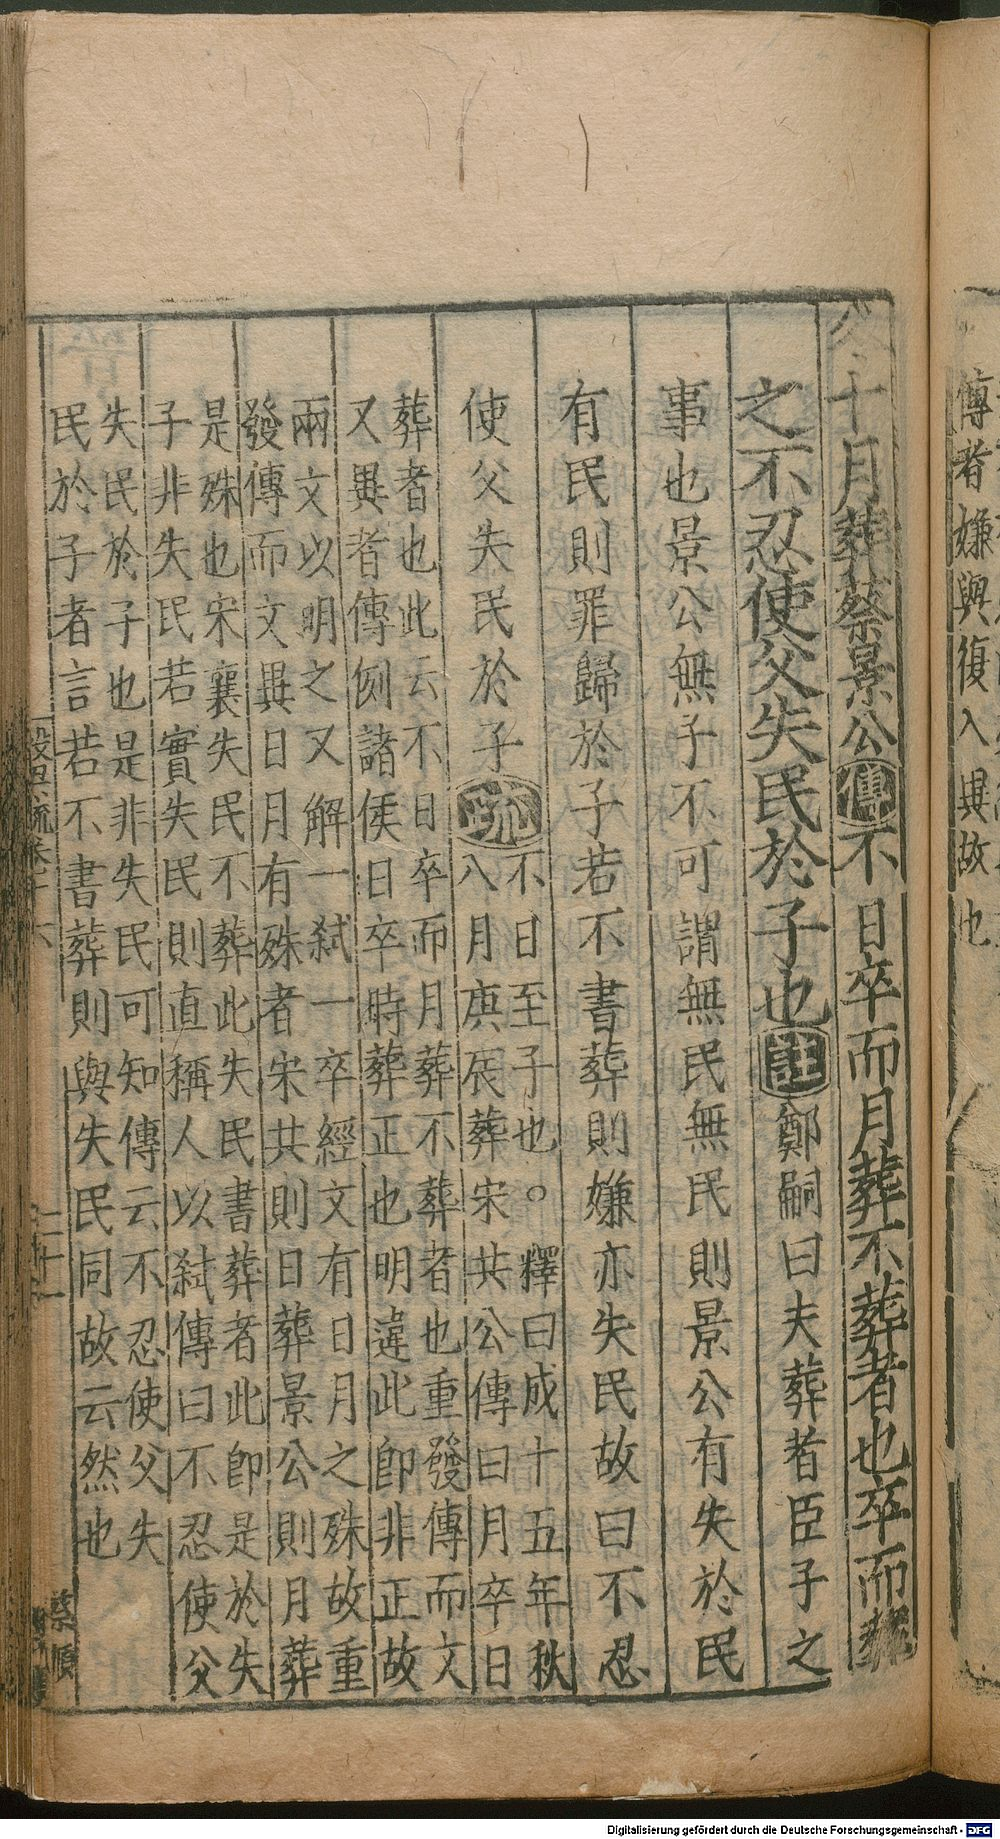 傳者嫌與復入異故也
冬十月葬蔡景公傳不日卒而月葬不葬者也卒而葬
之不忍使父失民於子也註鄭嗣曰夫葬者臣子之
事也景公無子不可謂無民無民則景公有失於民
有民則罪歸於子若不書葬則嫌亦失民故曰不忍
使父失民於子疏
不日至子也○釋曰成十五年秋
八月庚辰葬宋共公傳曰月卒日
葬者也此云不日卒而月葬不葬者也重發傳而文
又異者傳例諸侯日卒時葬正也明違此卽非正故
兩文以明之又解一弑一卒經文有日月之殊故重
發傳而文異日月有殊者宋共則日葬景公則月葬
是殊也宋襄失民不葬此失民書葬者此卽是於失
子非失民若實失民則直稱人以弑傳曰不忍使父
失民於子也是非失民可知傳云不忍使父失
民於子者言若不書葬則與失民同故云然也
蔡順
Digitalisierung gefördert durch die Deutsche Forschungsgemeinschaft - DFG